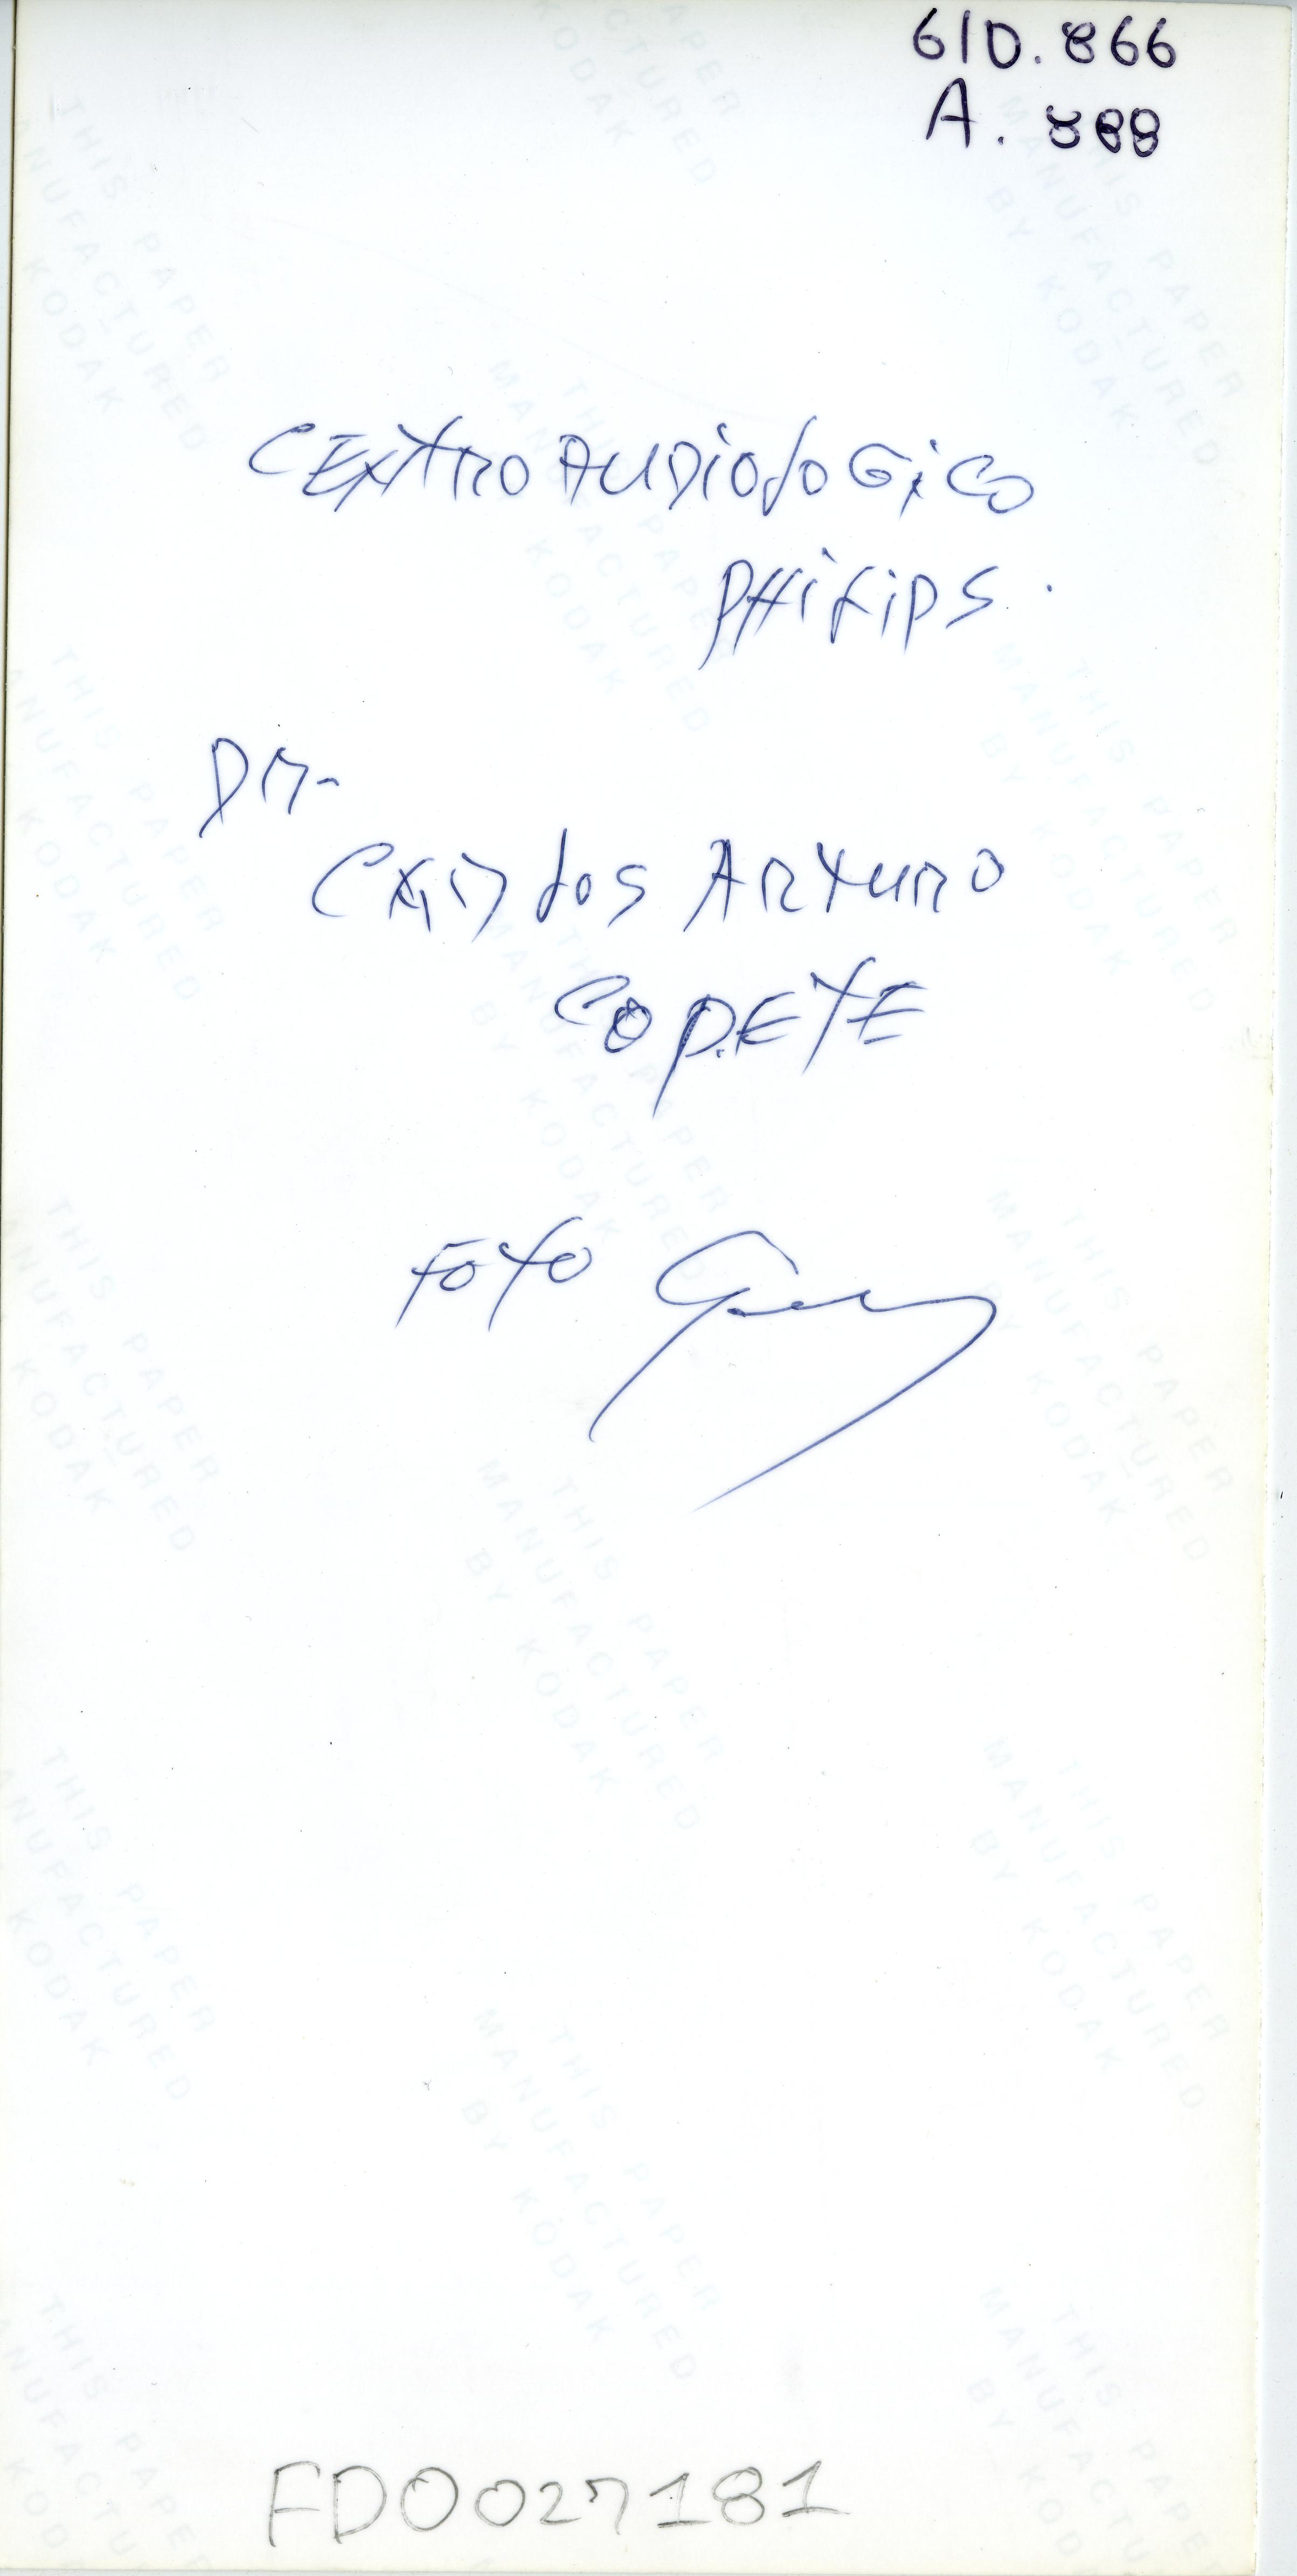 610.866
A. 888
CENTRO AUDIOLOGICO
PHILIPS.
DR-
CARLOS ARTURO
COPETE
FOTO
FD0027181
THIS PAPER
MANUFACTURED
BY KODAK